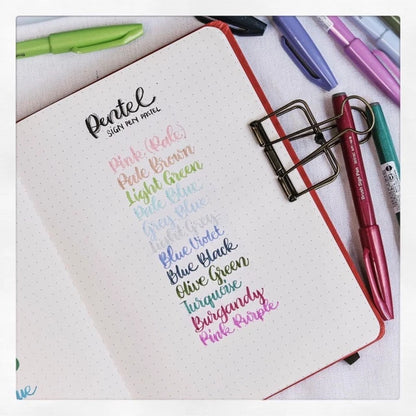 Pentel
SIGN PEN PASTEL
Pink (Pale)
Pale Brown
Light Green
Pale Blue
Grey Blue
Light Grey
Blue Violet
Blue Black
Olive Green
Turquoise
Burgandy
Pink Purple
ue